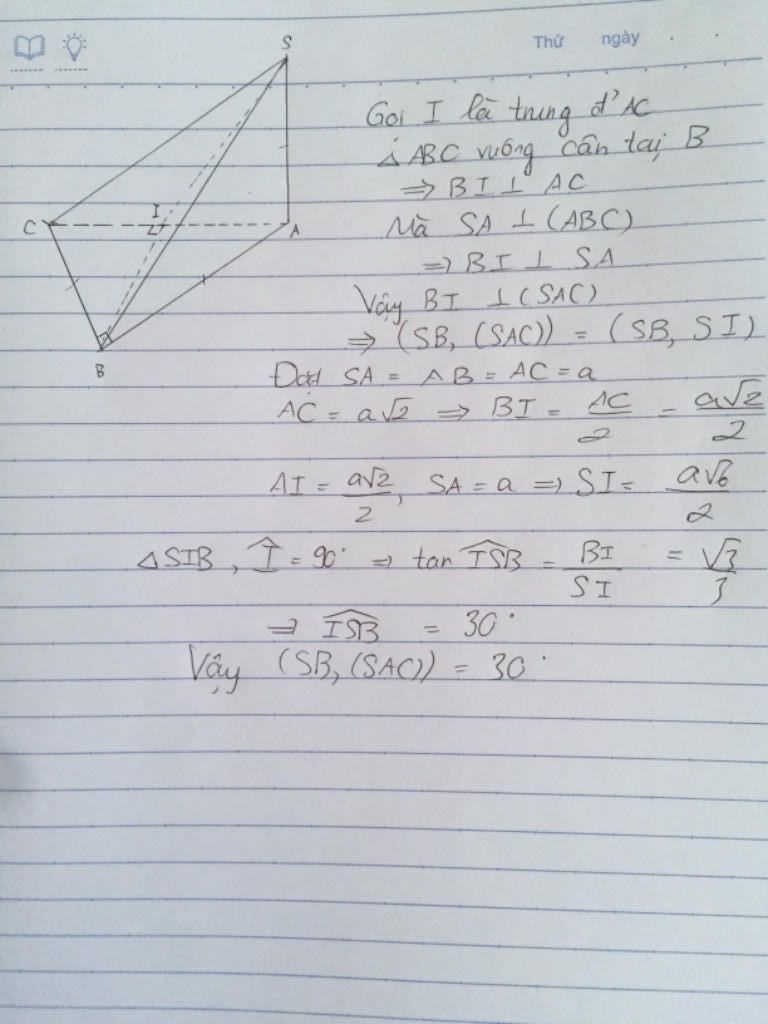 Thứ ngày
S
Gọi I là trung đ' AC
△ABC vuông cân tại B
⇒ BI ⊥ AC
C I A
Mà SA ⊥ (ABC)
⇒ BI ⊥ SA
Vậy BI ⊥ (SAC)
⇒ (SB, (SAC)) = (SB, SI)
B
Đặt SA = AB = AC = a
AC = a√2 ⇒ BI = AC/2 = a√2/2
AI = a√2/2, SA = a ⇒ SI = a√6/2
△SIB, Î = 90° ⇒ tan ISB = BI/SI = √3/3
⇒ ISB = 30°
Vậy (SB, (SAC)) = 30°